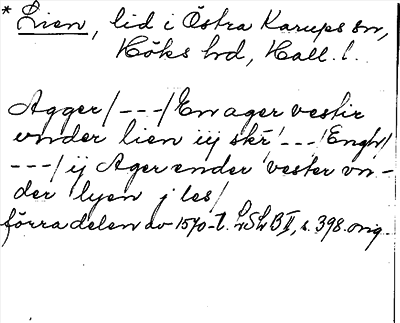 * Lien, lid i Östra Karups sn,
Höks hd, Hall. l.
Agger/ - - -/ En ager vestir
vnder lien iij skr̄/ - - -/ Engh/
- - -/ ij Ager ender vester vn-
der lyen j les/
förra delen av 1570-t. LSLB II, s. 398. orig.